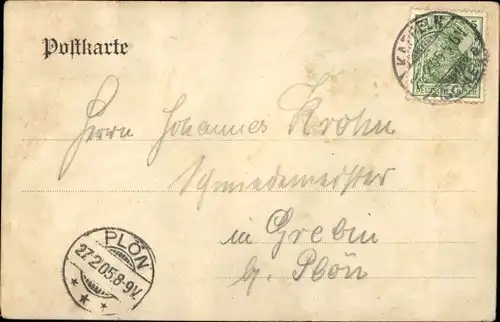 Postkarte
KAPPELN
Herrn Johannes Krohn
Schmiedemeister
in Grebin
b. Plön
PLÖN
27.2.05.8-9V.